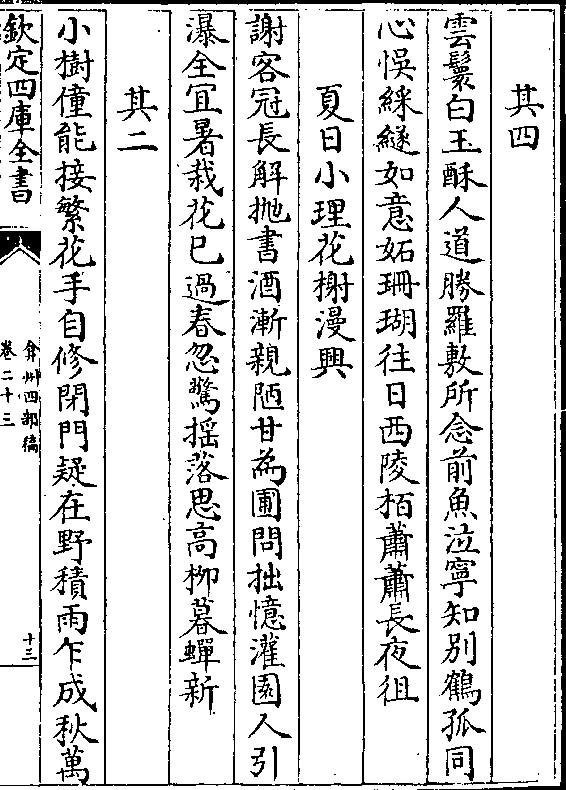 其四
雲鬟白玉酥人道勝羅敷所念前魚泣寧知別鶴孤同
心悞綵繸如意妬珊瑚往日西陵栢蕭蕭長夜徂
夏日小理花榭漫興
謝客冠長解拋書酒漸親陋甘為圃問拙憶灌園人引
瀑全宜暑栽花已過春忽驚揺落思高栁暮蟬新
其二
小樹僮能接繁花手自修閉門疑在野積雨乍成秋萬
欽定四庫全書
弇州四部稿
卷二十三
十三